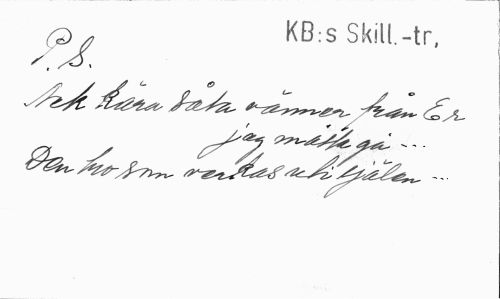 KB:s Skill.-tr,
P. S.
Ack kära såta vänner från Er
jag måste gå ...
Den hvo som verkas uti själen ...